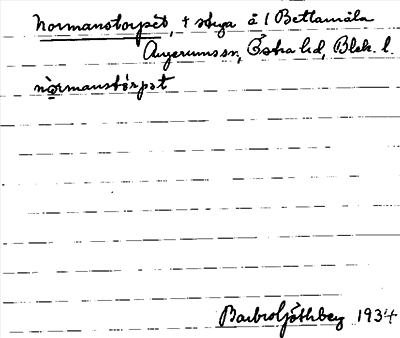 Normanstorpet, † stuga å 1 Betlamåla
Augerums sn, Östra hd, Blek. l.
nòrmanstórpət
Barbro Söthberg 1934